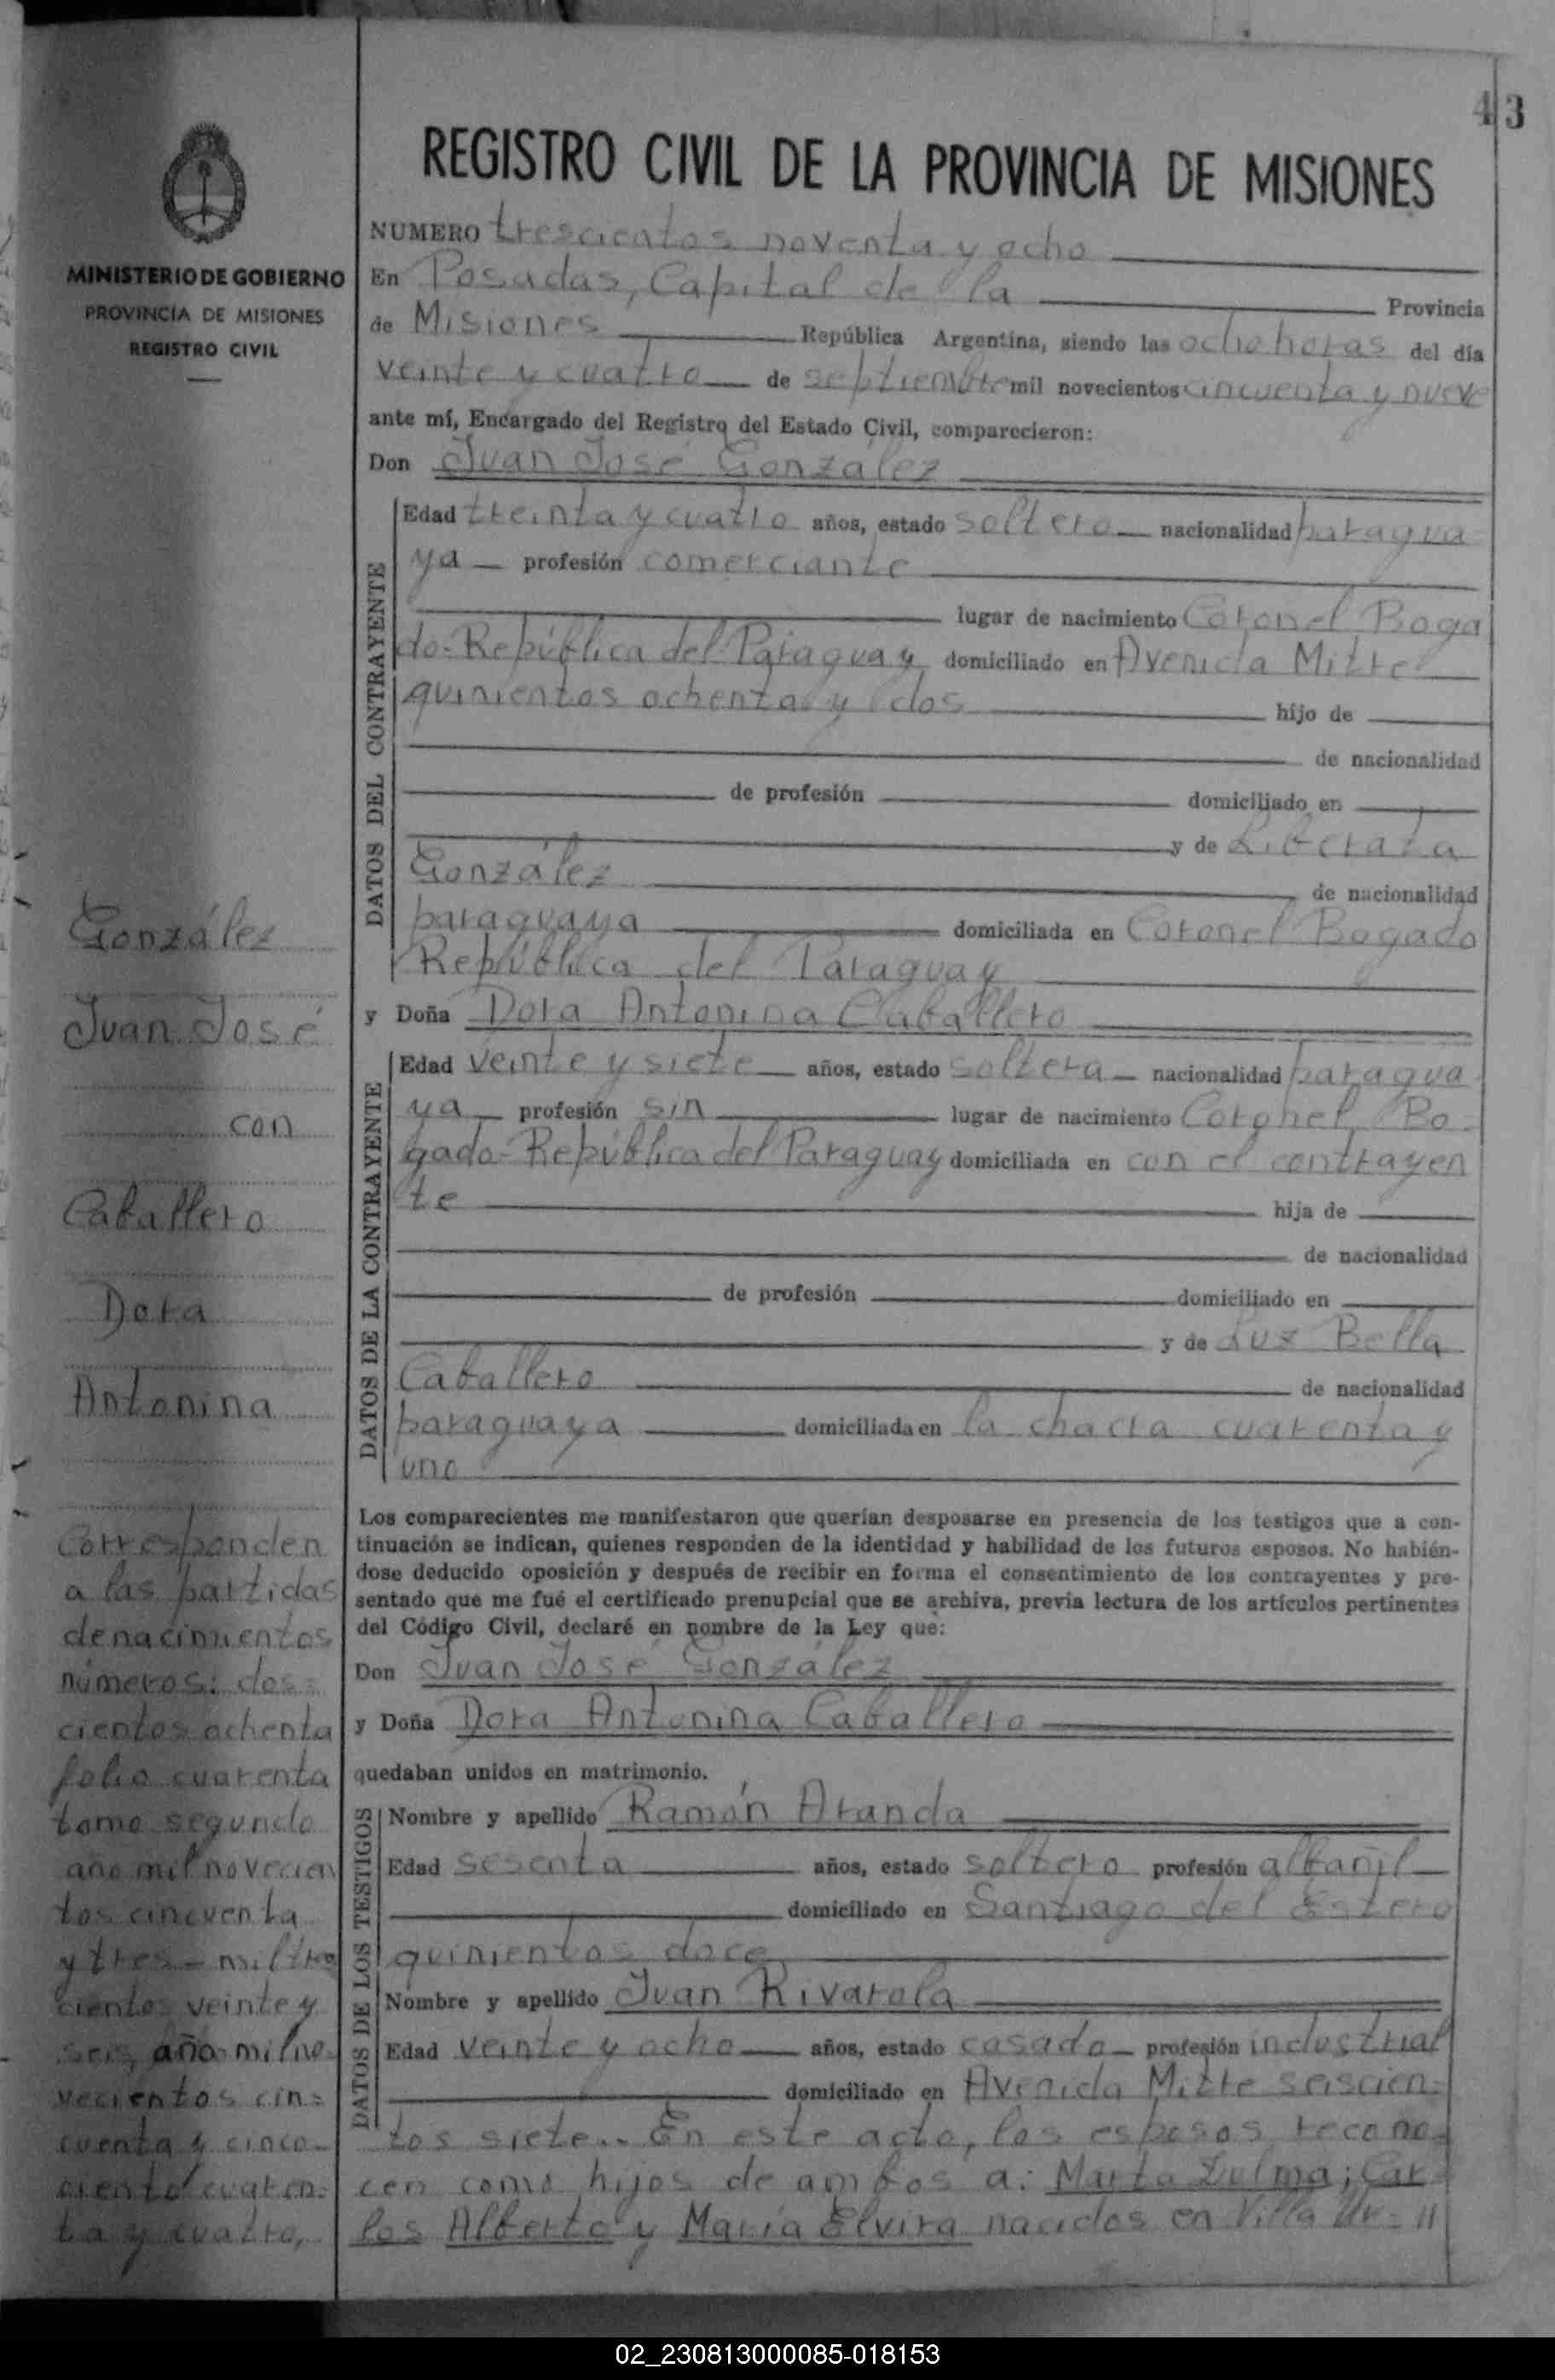 43
REGISTRO CIVIL DE LA PROVINCIA DE MISIONES
MINISTERIO DE GOBIERNO
PROVINCIA DE MISIONES
REGISTRO CIVIL
NUMERO trescientos noventa y ocho
En Posadas, Capital de la Provincia
de Misiones República Argentina, siendo las ocho horas del día
veinte y cuatro de septiembre mil novecientos cincuenta y nueve
ante mí, Encargado del Registro del Estado Civil, comparecieron:
Don Juan José González
DATOS DEL CONTRAYENTE
Edad treinta y cuatro años, estado soltero nacionalidad paragua
ya profesión comerciante
lugar de nacimiento Coronel Boga
do-República del Paraguay domiciliado en Avenida Mitre
quinientos ochenta y dos hijo de
de nacionalidad
de profesión domiciliado en
y de Liberata
González de nacionalidad
paraguaya domiciliada en Coronel Bogado
República del Paraguay
y Doña Dora Antonina Caballero
DATOS DE LA CONTRAYENTE
Edad veinte y siete años, estado soltera nacionalidad paragua
ya profesión sin lugar de nacimiento Coronel Bo-
gado-República del Paraguay domiciliada en con el contrayen
te hija de
de nacionalidad
de profesión domiciliado en
y de Luz Bella
Caballero de nacionalidad
paraguaya domiciliada en la chacra cuarenta y
uno
Los comparecientes me manifestaron que querían desposarse en presencia de los testigos que a con-
tinuación se indican, quienes responden de la identidad y habilidad de los futuros esposos. No habién-
dose deducido oposición y después de recibir en forma el consentimiento de los contrayentes y pre-
sentado que me fué el certificado prenupcial que se archiva, previa lectura de los artículos pertinentes
del Código Civil, declaré en nombre de la Ley que:
Don Juan José González
y Doña Dora Antonina Caballero
quedaban unidos en matrimonio.
DATOS DE LOS TESTIGOS
Nombre y apellido Ramón Aranda
Edad sesenta años, estado soltero profesión albañil
domiciliado en Santiago del Estero
quinientos doce
Nombre y apellido Juan Rivarola
Edad veinte y ocho años, estado casado profesión industrial
domiciliado en Avenida Mitre seiscien-
tos siete.. En este acto, los esposos recono-
cen como hijos de ambos a: Marta Zulma; Car
los Alberto y María Elvira nacidos en Villa Ur= //
González
Juan José
con
Caballero
Dora
Antonina
Corresponden
a las partidas
de nacimientos
números: dos=
cientos ochenta
folio cuarenta
tomo segundo
año mil novecien
tos cincuenta
y tres - mil tres
cientos veinte y
seis, año mil no-
vecientos cin=
cuenta y cinco-
ciento cuaren=
ta y cuatro,
02_230813000085-018153